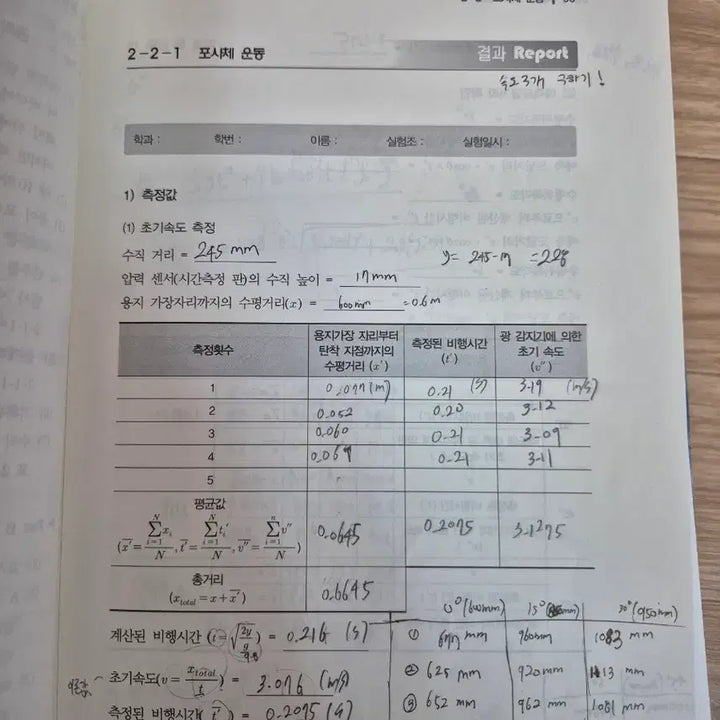 2-2-1 포사체 운동
결과 Report
속도 3개 구하기!
학과 : 학번 : 이름 : 실험조 : 실험일시 :
1) 측정값
(1) 초기속도 측정
수직 거리 = 245 mm y = 245-17 = 228
압력 센서(시간측정 판)의 수직 높이 = 17 mm
용지 가장자리까지의 수평거리(x) = 600 mm = 0.6 m
측정횟수 용지가장 자리부터 탄착 지점까지의 수평거리 (x′) 측정된 비행시간 (t′) 광 감지기에 의한 초기 속도 (v″)
1 0.077 (m) 0.21 (s) 3.19 (m/s)
2 0.052 0.20 3.12
3 0.060 0.21 3.09
4 0.069 0.21 3.11
5
평균값
0.0645 0.2075 3.1275
총거리
(x_total = x + x̄′) 0.6645
계산된 비행시간 (t = √(2y/g)) = 0.216 (s)
9.8
초기속도(v = x_total/t) = 3.076 (m/s)
측정된 비행시간( t̄′ ) = 0.2075 (s)
0° (600mm) 15° 30° (950mm)
① 677 mm 960mm 1083 mm
② 625 mm 920 mm 1113 mm
③ 652 mm 962 mm 1081 mm